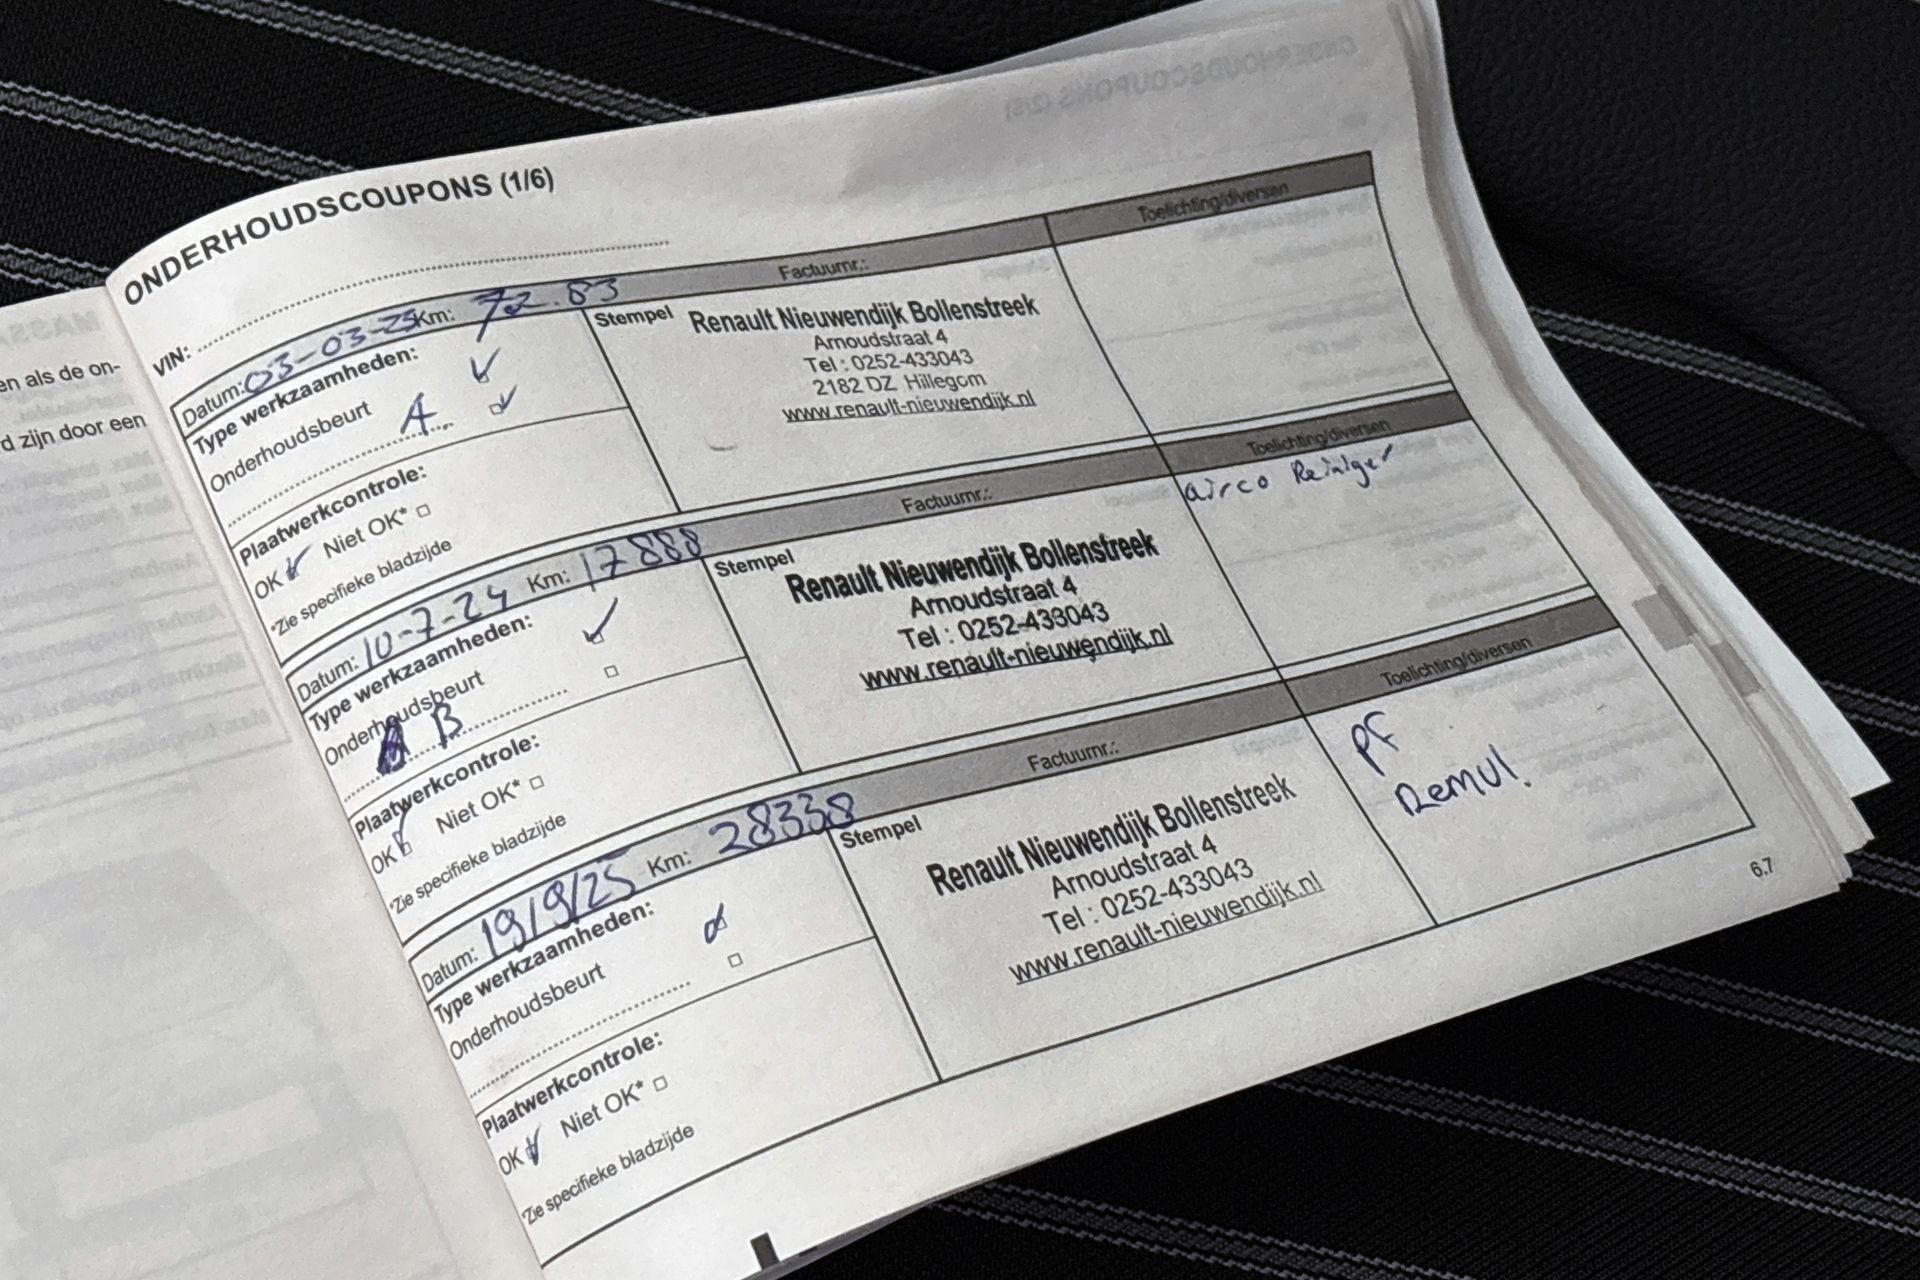 ONDERHOUDSCOUPONS (1/6)
VIN:
Datum: 03-03-23 Km: 72.83 Factuurnr.: Toelichting/diversen
Type werkzaamheden:
Onderhoudsbeurt
A
Plaatwerkcontrole:
OK Niet OK*
*Zie specifieke bladzijde
Stempel
Renault Nieuwendijk Bollenstreek
Arnoudstraat 4
Tel : 0252-433043
2182 DZ Hillegom
www.renault-nieuwendijk.nl
Datum: 10-7-24 Km: 17888 Factuurnr.: Toelichting/diversen
Type werkzaamheden:
Onderhoudsbeurt
B
Plaatwerkcontrole:
OK Niet OK*
*Zie specifieke bladzijde
Stempel
Renault Nieuwendijk Bollenstreek
Arnoudstraat 4
Tel : 0252-433043
www.renault-nieuwendijk.nl
airco Reiniger
Datum: 19/9/25 Km: 28338 Factuurnr.: Toelichting/diversen
Type werkzaamheden:
Onderhoudsbeurt
Plaatwerkcontrole:
OK Niet OK*
*Zie specifieke bladzijde
Stempel
Renault Nieuwendijk Bollenstreek
Arnoudstraat 4
Tel : 0252-433043
www.renault-nieuwendijk.nl
PF
Remvl.
6.7
en als de on-
d zijn door een